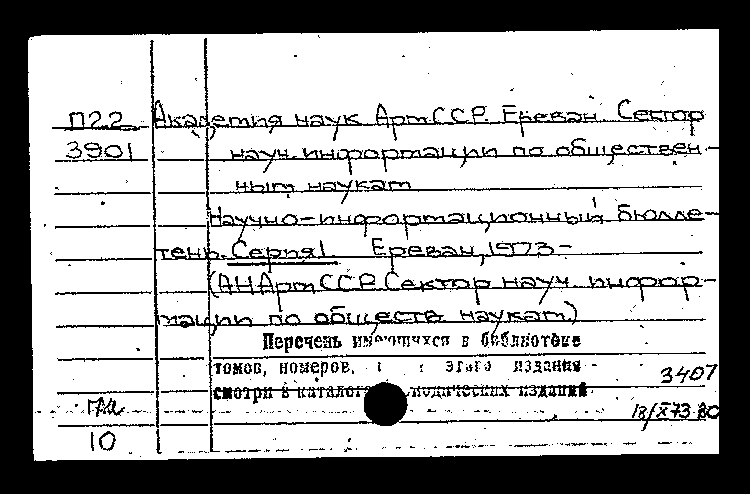 П22 Академия наук АрмССР. Ереван. Сектор
3901 науч. информации по обществен-
ным наукам
Научно-информационный бюлле-
тень. Серия 1 Ереван, 1973-
(АН АрмССР. Сектор науч. инфор-
мации по обществ. наукам)
Перечень имеющихся в библиотеке
томов, номеров, этого издания
смотри в каталоге изданий
3407
18/X 73 80
10